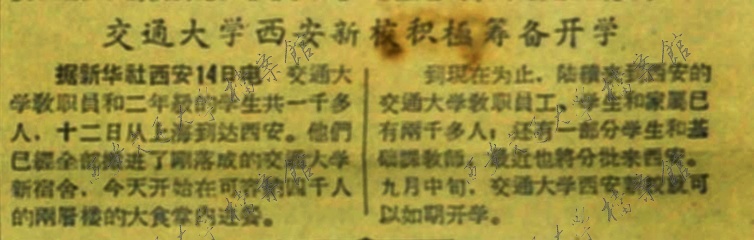 交通大学西安新校积极筹备开学
据新华社西安14日电 交通大
学教职員和二年級的学生共一千多
人，十二日从上海到达西安。他們
已經全部搬进了剛落成的交通大学
新宿舍，今天开始在可容納四千人
的兩層楼的大食堂內进餐。
到現在为止，陆續来到西安的
交通大学教职員工、学生和家屬已
有兩千多人；还有一部分学生和基
础課教師，最近也將分批来西安。
九月中旬，交通大学西安新校就可
以如期开学。